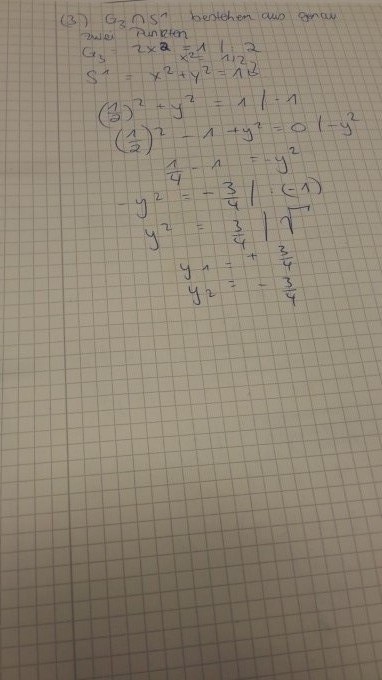 (3.) G₃ ∩ S¹ bestehen aus genau
zwei Punkten
G₃ = 2x2 = 1 | : 2
x² =
S¹ = x² + y² = 1
(1/2)² + y² = 1 | - 1
(1/2)² - 1 + y² = 0 | - y²
1/4 - 1 = - y²
- y² = - 3/4 | · (-1)
y² = 3/4 | √
y₁ = + 3/4
y₂ = - 3/4